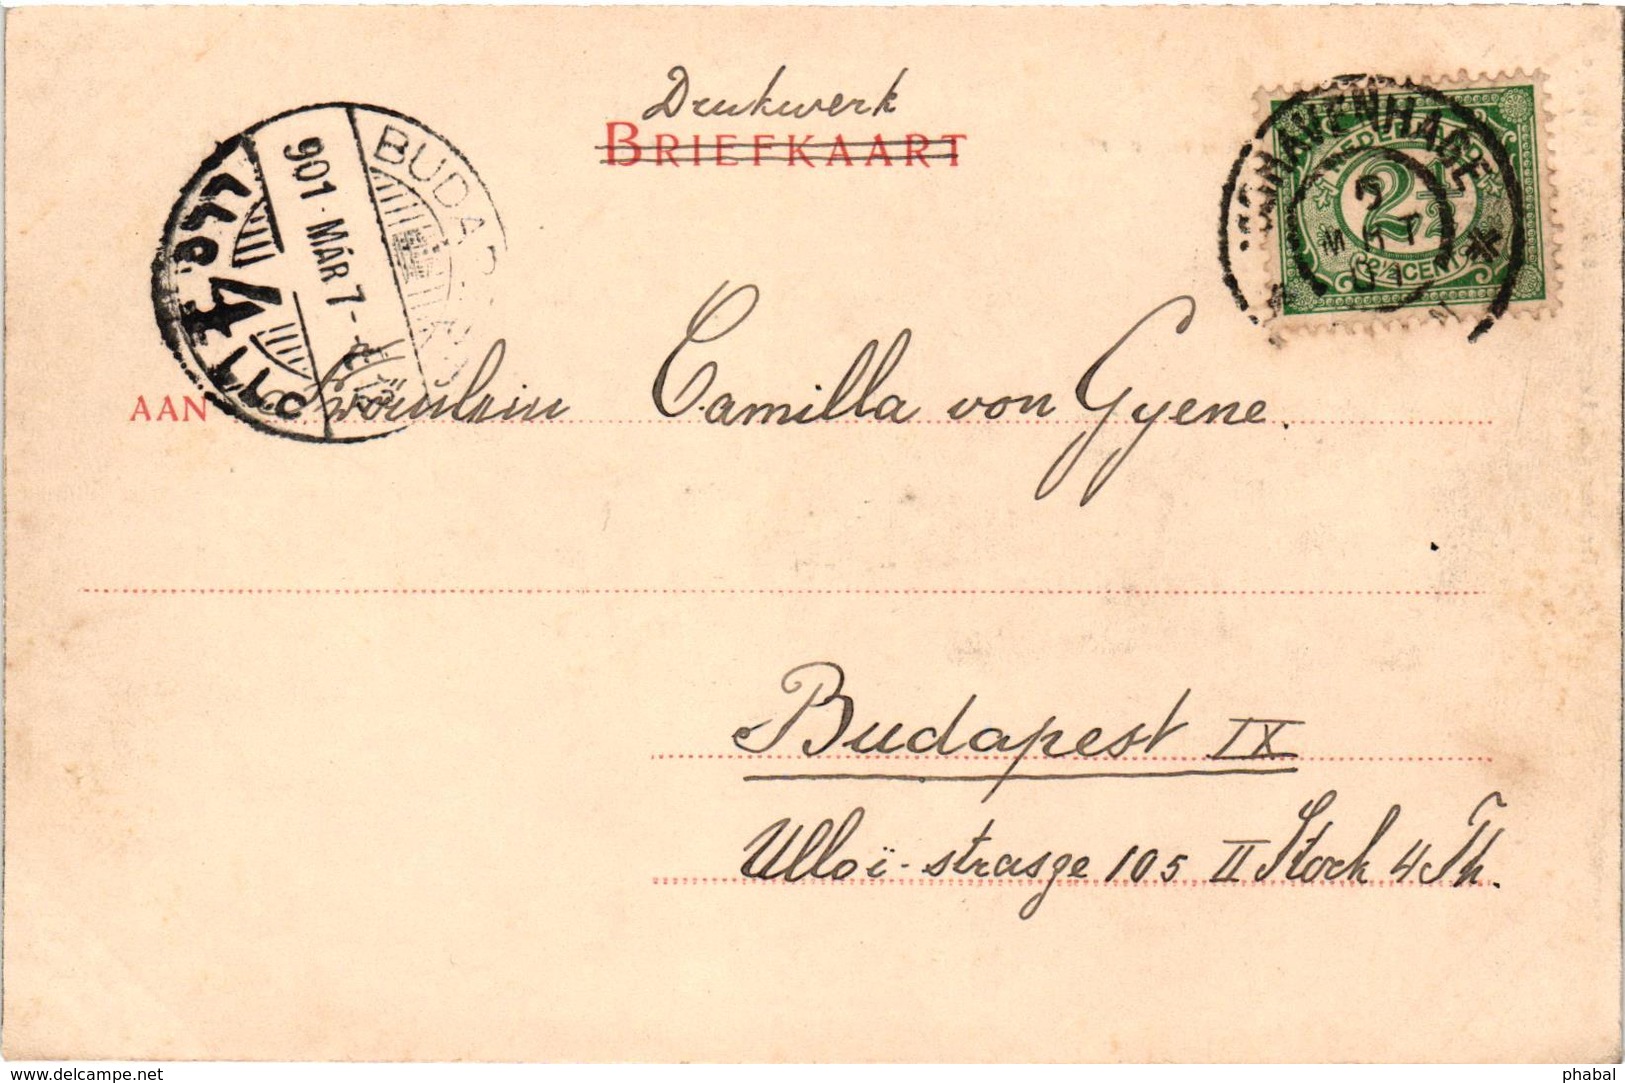 Drukwerk
BRIEFKAART
BUDAPEST
901 MÁR 7
'S GRAVENHAGE
NEDERLAND
2½
2½ CENT
MRT
01
AAN Fräulein Camilla von Gyene.
Budapest IX
Ulloï-strasze 105 II Stock 4 Th.
www.delcampe.net
phabal